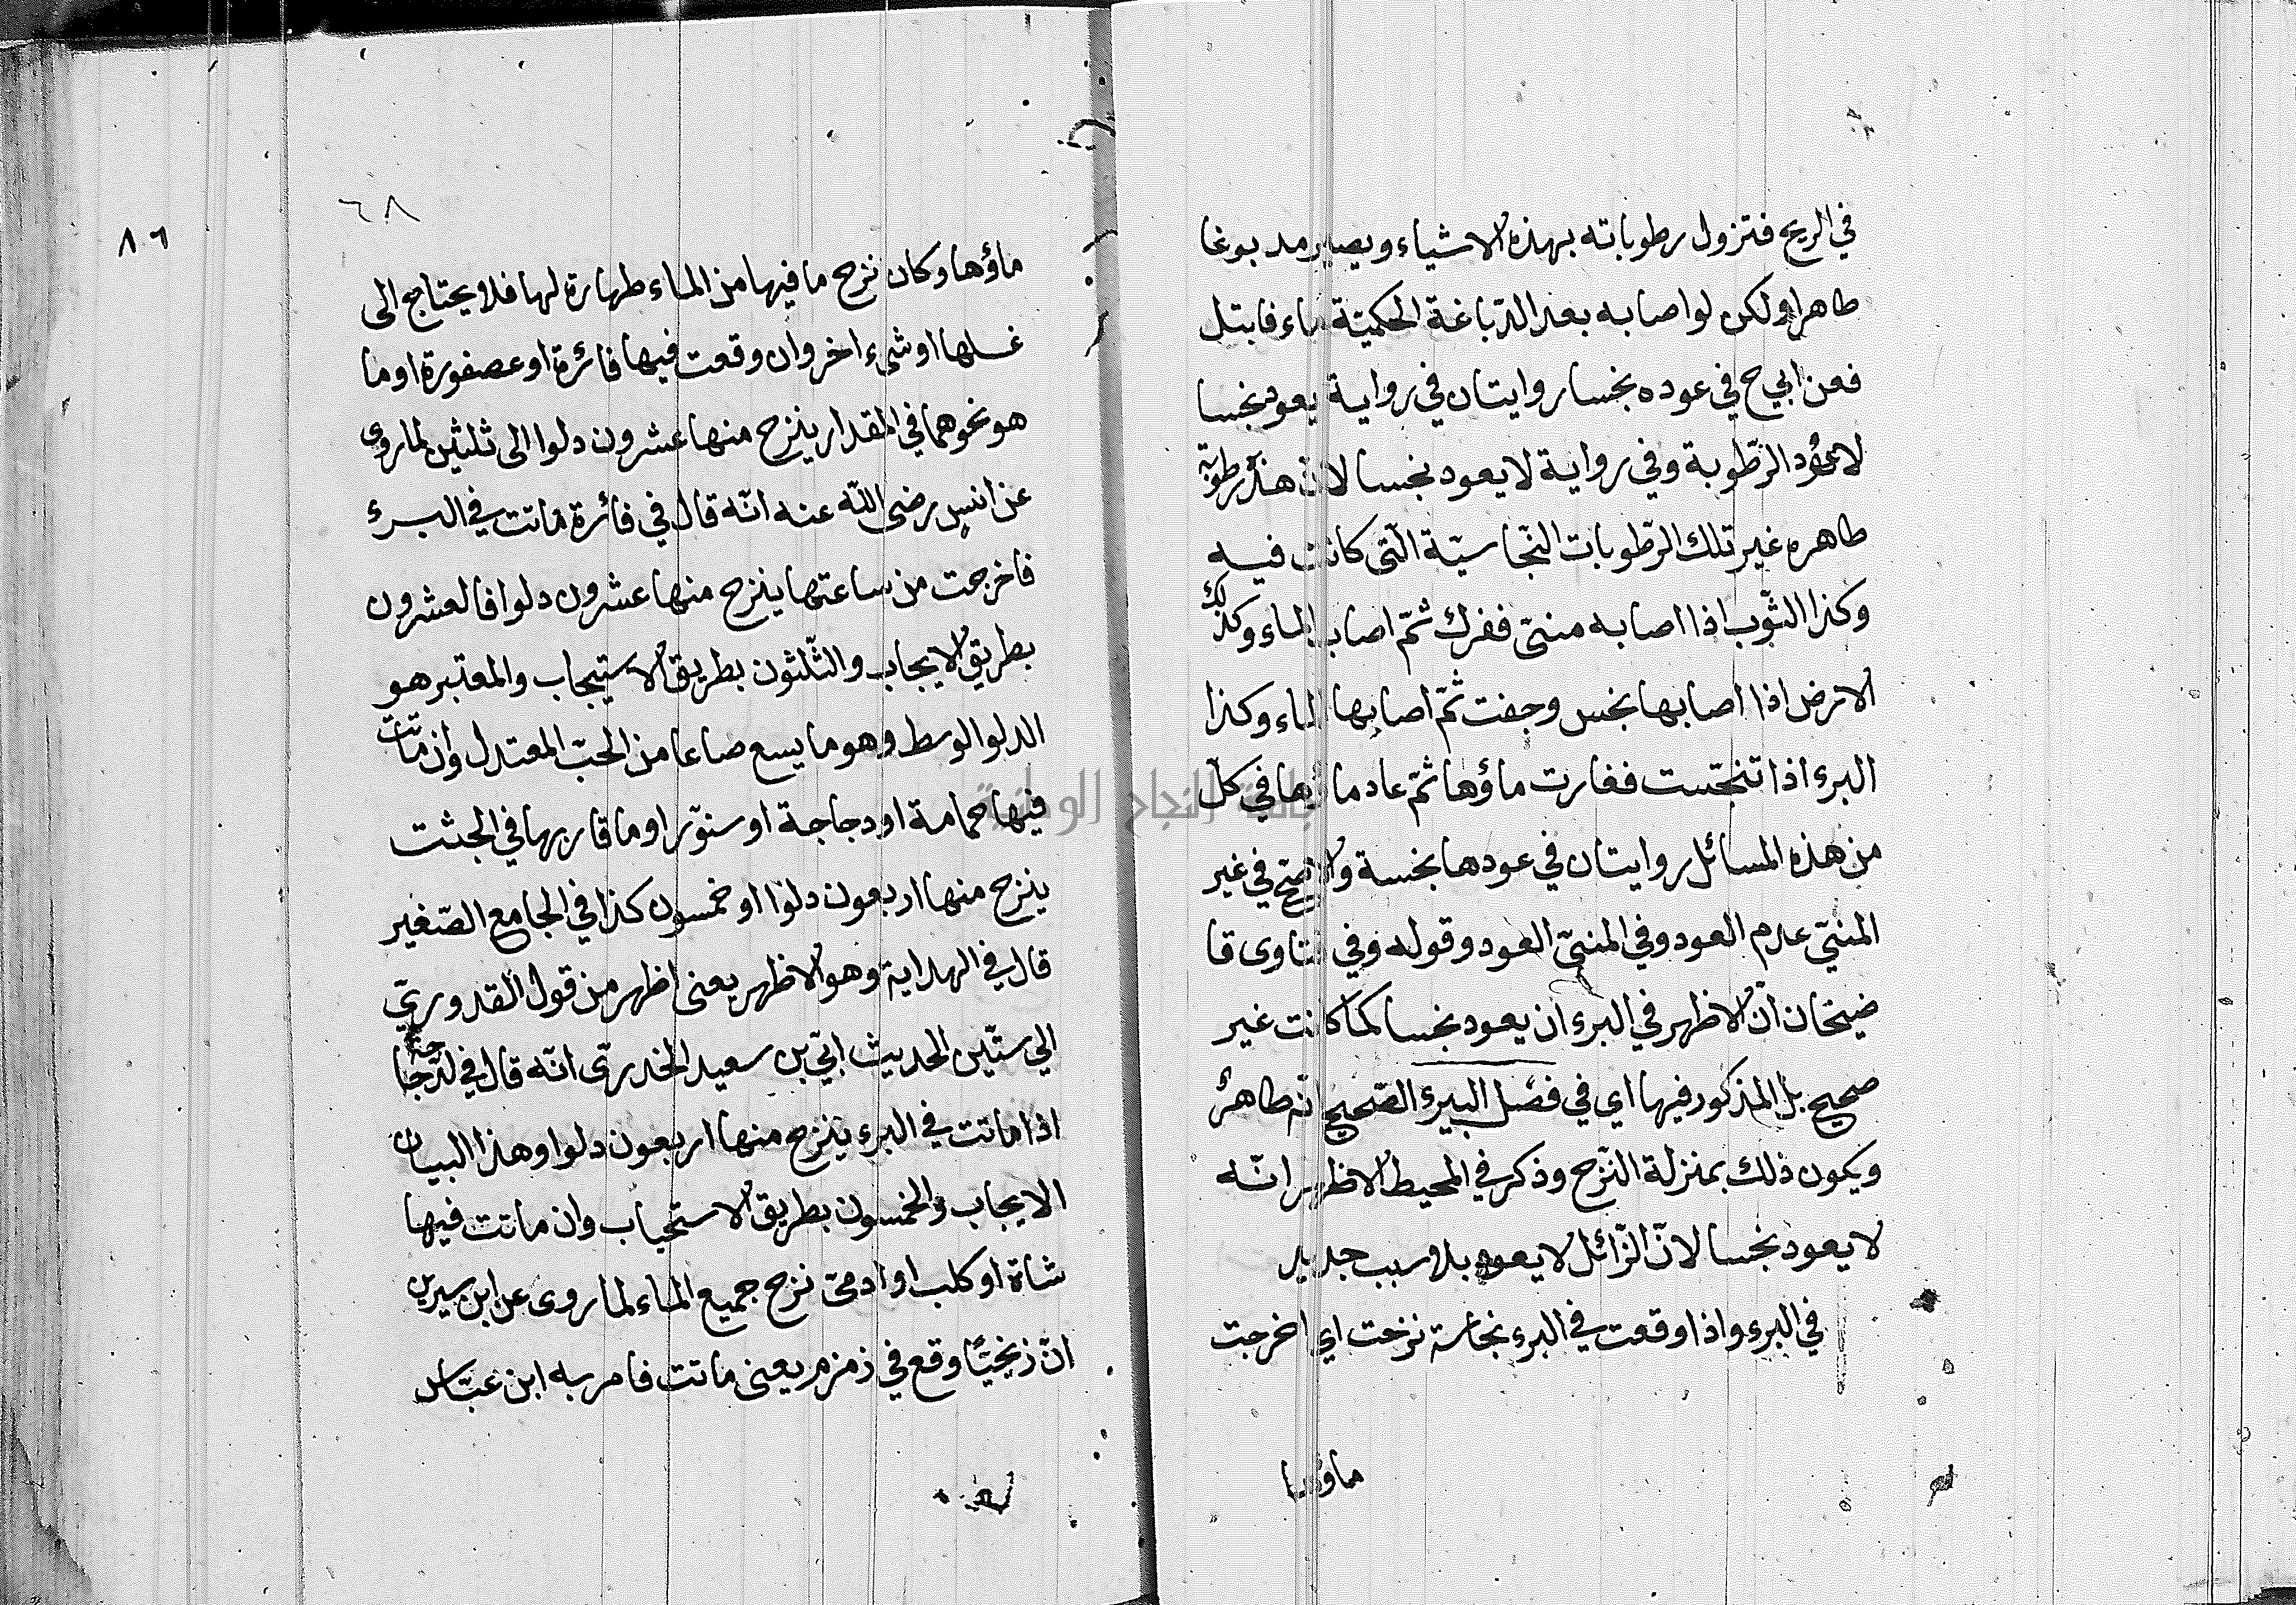 في الريح فتزول رطوباته بهذه الاشياء ويصير مدبوغا
طاهرا ولكن لو اصابه بعد الدّباغة الحكميّة ماء فابتل
فعن ابي ح في عوده نجسا روايتان في رواية يعود نجسا
لاعود الرّطوبة وفي رواية لا يعود نجسا لانّ هذه رطوبة
طاهره غير تلك الرّطوبات النّجاسيّة الّتى كانت فيه
وكذا الثّوب اذا اصابه منىّ ففرك ثمّ اصاب الماء وكذلك
الارض اذا اصابها نجس وجفت ثمّ اصابها الماء وكذا
البرء اذا تنجّست فغارت ماؤها ثمّ عاد ماؤها في كلّ
من هذه المسائل روايتان في عودها نجسة والاصحّ في غير
المنيّ عدم العود وفي المنيّ العود وقوله وفي فتاوى قا
ضيخان انّ الاظهر في البرء ان يعود نجسا لما كانت غير
صحيح بل المذكور فيها اي في فصل البيرء الصّحيح انّه طاهر
ويكون ذلك بمنزلة النّزح وذكر في المحيط الاظهر انّه
لا يعود نجسا لانّ الزّائل لا يعود بلا سبب جديد
في البرء واذا وقعت في البرء نجاسة نزحت اي اخرجت
ماؤها
٦٨
٨٦
ماؤها وكان نزح ما فيها من الماء طهارة لها فلا يحتاج الى
غسلها او شىء اخر وان وقعت فيها فائرة او عصفورة او ما
هو نحوهما في المقدار ينزح منها عشرون دلوا الى ثلثين لما روى
عن انس رضى اللّه عنه انّه قال في فائرة ماتت في البرء
فاخرجت من ساعتها ينزح منها عشرون دلوا فالعشرون
بطريق الايجاب والثّلثون بطريق الاستيجاب والمعتبر هو
الدلو الوسط وهو ما يسع صاعا من الحبّ المعتدل وان ماتت
فيها حمامة او دجاجة او سنوّر او ما قاربها في الجثت
ينزح منها اربعون دلوا او خمسون كذا في الجامع الصّغير
قال في الهداية وهو الاظهر يعنى اظهر من قول القدوريّ
الى ستّين الحديث ابيّ بن سعيد الخدرىّ انّه قال في الدّجاجة
اذا ماتت في البرء ينزح منها اربعون دلوا وهذا البيان
الايجاب والخمسون بطريق الاستحباب وان ماتت فيها
شاة او كلب او ادمىّ نزح جميع الماء لما روى عن ابن سيرين
انّ زنجيّا وقع في زمزم يعنى ماتت فامر به ابن عبّاس
جامعة النجاح الوطنية